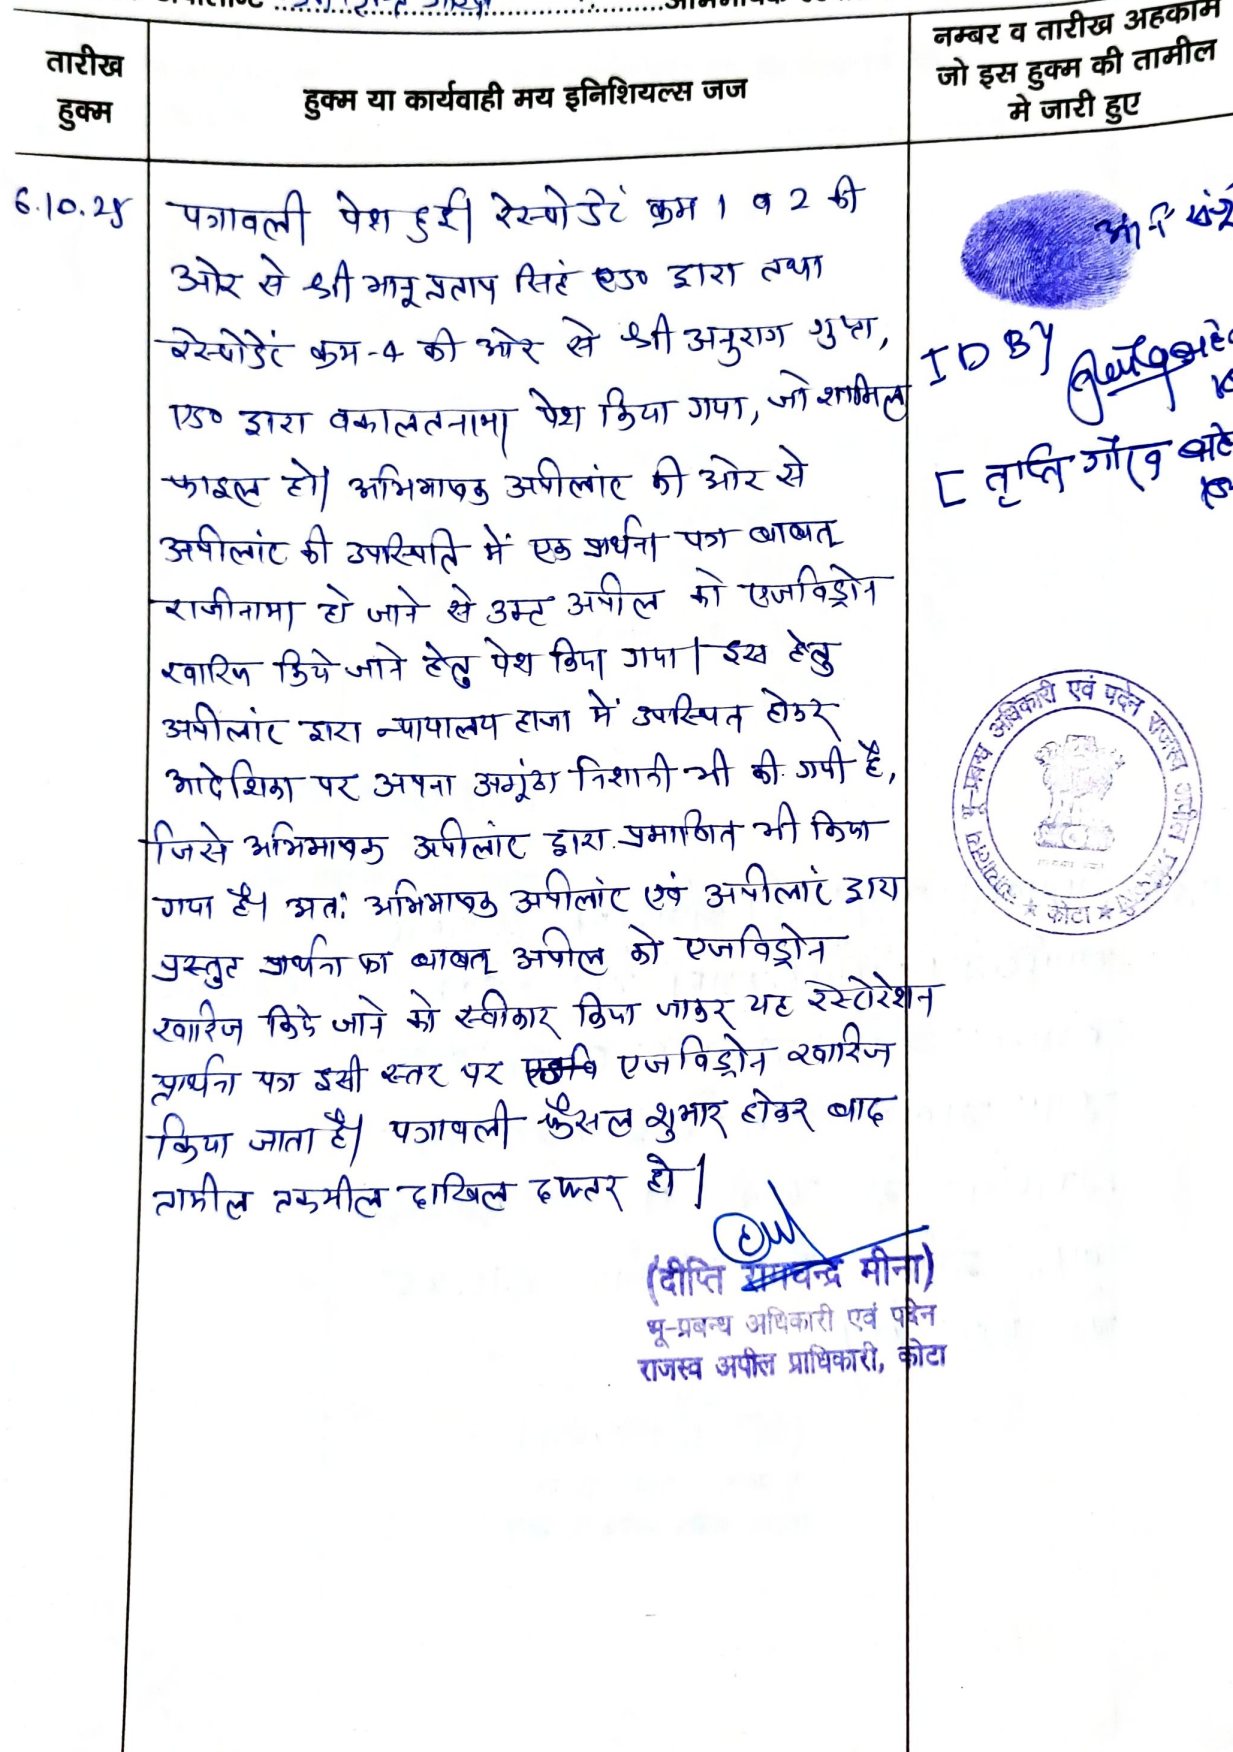 तारीख
हुक्म
हुक्म या कार्यवाही मय इनिशियल्स जज
नम्बर व तारीख अहकाम
जो इस हुक्म की तामील
मे जारी हुए
6.10.25
पत्रावली पेश हुई। रेस्पोडेटं क्रम 1 व 2 की
ओर से श्री भानू प्रताप सिहं एड० द्वारा तथा
रेस्पोडेटं क्रम-4 की ओर से श्री अनुराग गुप्ता,
एड० द्वारा वकालतनामा पेश किया गया, जो शामिल
फाइल हो। अभिभाषक अपीलांट की ओर से
अपीलांट की उपस्थिति में एक प्रार्थना पत्र बाबत्
राजीनामा हो जाने से उक्त अपील को एजविड्रोन
खारिज किये जाने हेतु पेश किया गया। इस हेतु
अपीलांट द्वारा न्यायालय हाजा में उपस्थित होकर
आदेशिका पर अपना अगूंठा निशानी भी की गयी है,
जिसे अभिभाषक अपीलांट द्वारा प्रमाणित भी किया
गया है। अतः अभिभाषक अपीलांट एवं अपीलांट द्वारा
प्रस्तुत प्रार्थना का बाबत् अपील को एजविड्रोन
खारिज किये जाने को स्वीकार किया जाकर यह रेस्टोरेशन
प्रार्थना पत्र इसी स्तर पर एजविड्रोन खारिज
किया जाता है। पत्रावली फैसल शुमार होकर बाद
तामील तकमील दाखिल दफ्तर हो।
(दीप्ति रामचन्द्र मीना)
भू-प्रबन्ध अधिकारी एवं पदेन
राजस्व अपील प्राधिकारी, कोटा
ID BY
[ तृप्ति गौरव
कार्यालय भू-प्रबन्ध अधिकारी एवं पदेन राजस्व अपील प्राधिकारी
★ कोटा ★